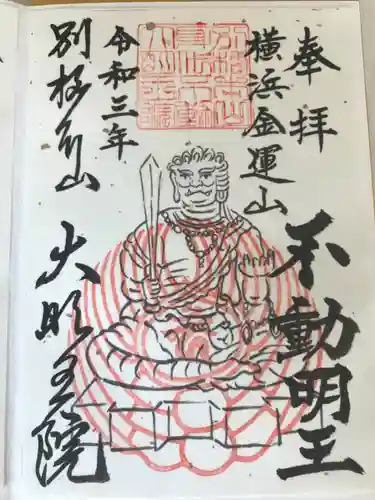 奉拝
横浜金運山
不動明王
令和三年
別格本山
大明王院